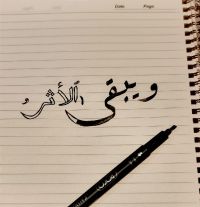 Date Page
ويبقى الأثرُ